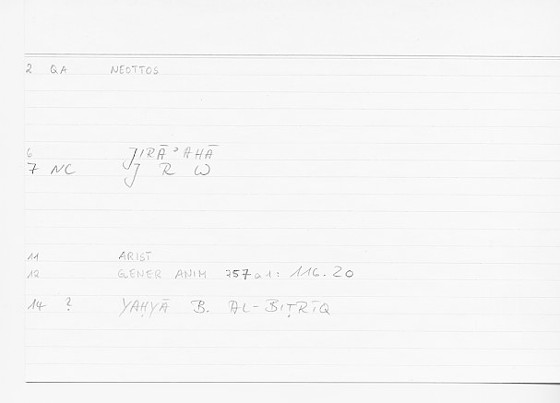 2 QA NEOTTOS
6 JIRĀʾAHĀ
7 NC J R W
11 ARIST
12 GENER ANIM 757 a 1: 116.20
14 ? YAḤYĀ B. AL-BIṬRĪQ